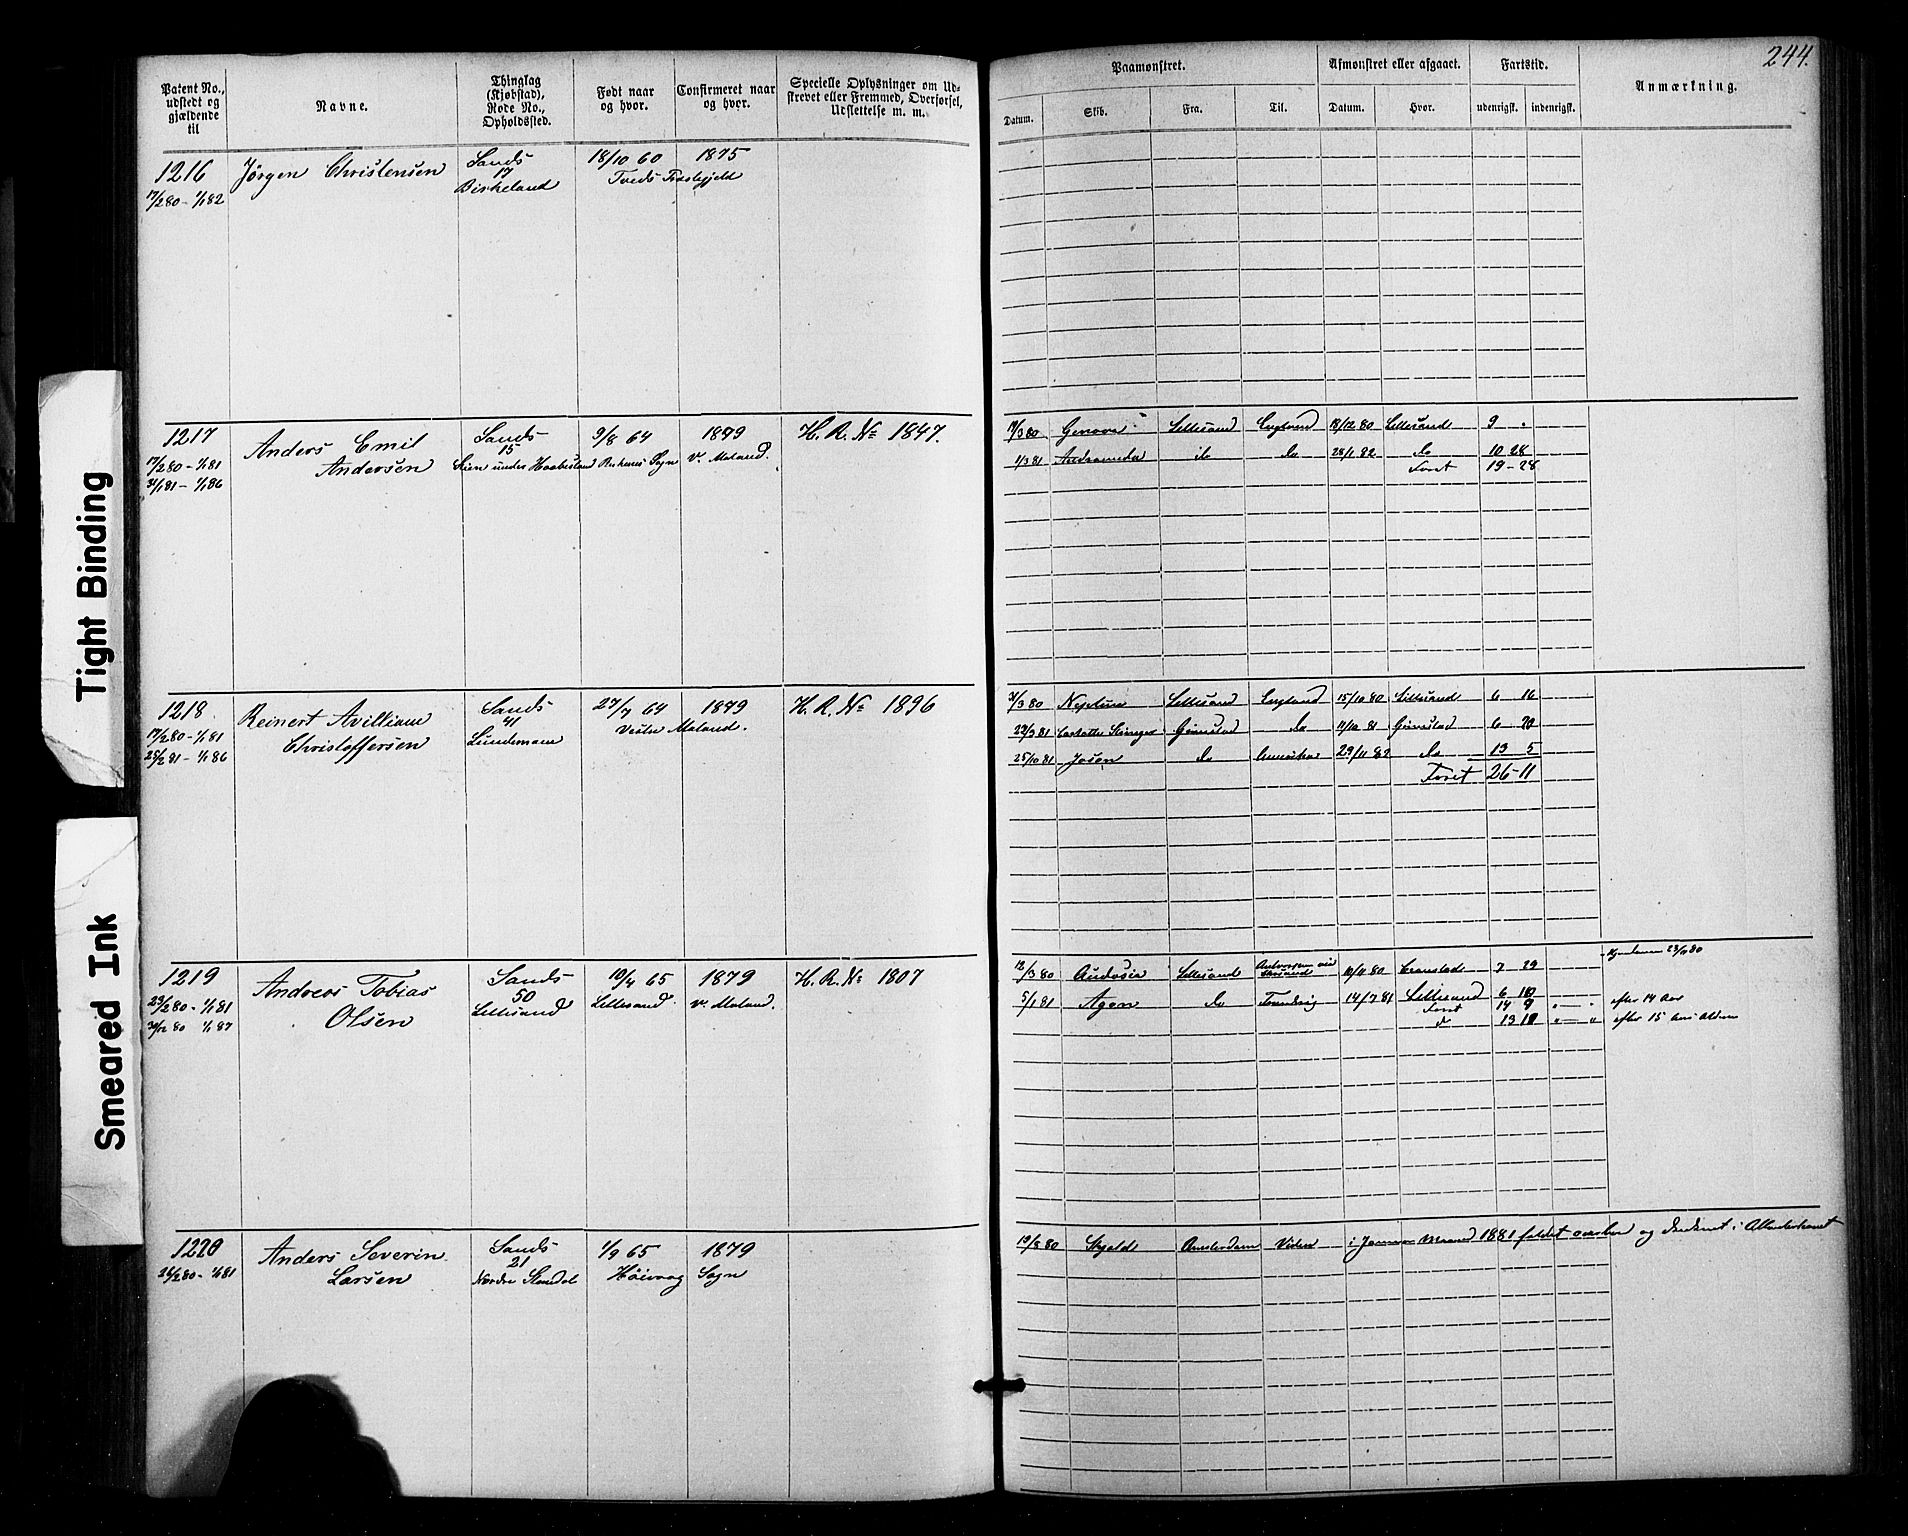 244.
Patent No., udstedt og gjældende til
Navne.
Thinglag (Kjøbstad), Rode No., Opholdssted.
Født naar og hvor.
Confirmeret naar og hvor.
Specielle Oplysninger om Udskrevet eller Fremmed, Overførsel, Udslettelse m. m.
Paamønstret.
Afmønstret eller afgaaet.
Fartstid.
Anmærkning.
Datum. Skib. Fra. Til. Datum. Hvor. udenrigsk. indenrigsk.
1216 Jørgen Christensen Sands 18/10 60 1875
17
17/2 80 - 1/1 82 Birkeland Tveds
1217 Anders Emil Sands 9/8 64 1879 H. R. No 1847.
Andersen 15
17/2 80 - 1/1 81 under Sogn V. Moland.
31/1 81 - 1/1 86
Lillesand England 18/12 80 Lillesand 9 "
1/3 81 Andromeda do do 28/1 82 do 10 28
19 - 28
1218 Reinert Avilliam Sands 27/7 64 1879 H. R. No 1896
Christoffersen 41
17/2 80 - 1/1 81 Vestre Moland.
25/2 81 - 1/1 86
31/3 80 Neptun Lillesand England 15/10 80 Lillesand 6 16
22/3 81 Grimstad do 11/10 81 Grimstad 6 20
25/10 81 do 29/11 82 do 13 5
26 - 11
1219 Andreas Tobias Sands 19/4 65 1879 H. R. No 1807
Olsen 50
23/2 80 - 1/1 81 Lillesand Lillesand. V. Moland.
30/12 80 1/1 87
12/3 80 Lillesand 11/11 80 7 29
23/11 80
5/1 81 do 14/7 81 Lillesand 6 10
14 9 " — " efter 14 Aar
do 13 10 " — " efter 15 Aars Alderen
1220 Anders Severin Sands 1/9 65 1879
Larsen 21
26/2 80 - 1/1 81 Nordre Høivaag Sogn
19/8 80 Skjold Amsterdam i Januar Maaned 1881 faldet overbord og druknet i Atlanterhavet
Tight Binding
Smeared Ink